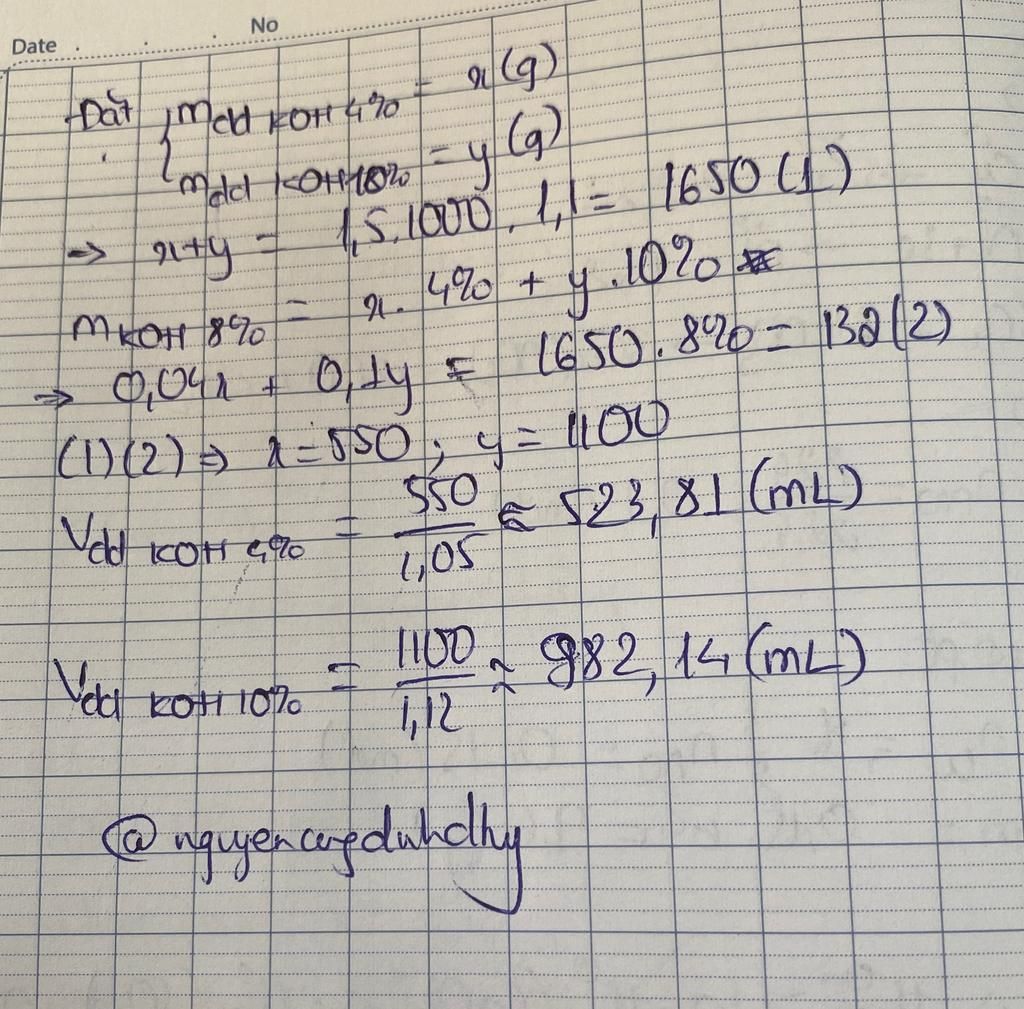 Date
No
Đặt { mdd KOH 4% = x (g)
mdd KOH 10% = y (g)
=> x+y = 1,5.1000.1,1 = 1650 (1)
mKOH 8% = x. 4% + y.10%
=> 0,04x + 0,1y = 1650.8% = 132 (2)
(1)(2) => x = 550; y = 1100
Vdd KOH 4% = 550/1,05 ≈ 523,81 (mL)
Vdd KOH 10% = 1100/1,12 ≈ 982,14 (mL)